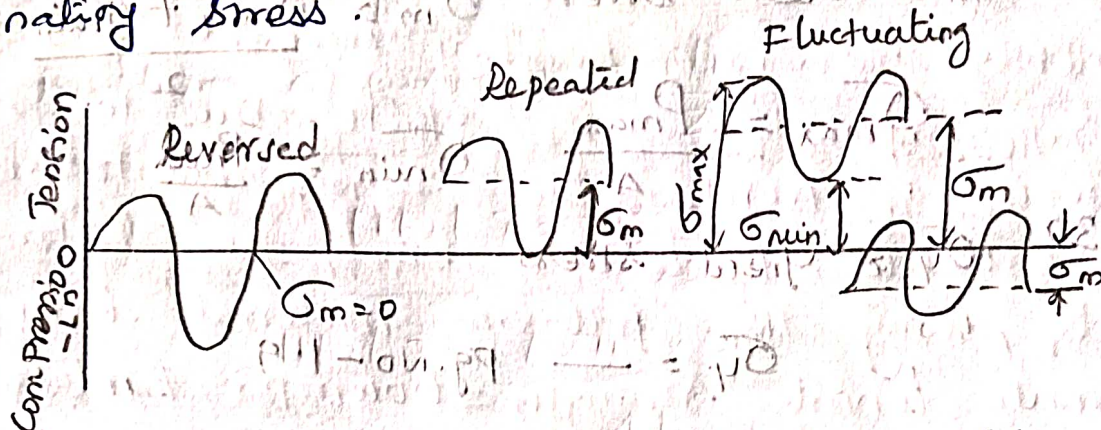 stress.
Fluctuating
Repeated
Reversed
Tension
0
Compression
σm=0
σm
σmax
σmin
σm
σm